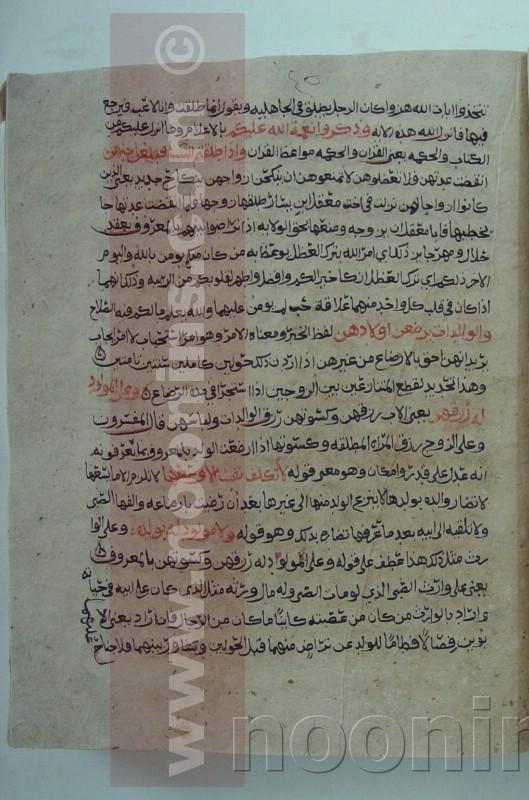 تتخذوا ايات الله هزوا كان الرجل يطلق في الجاهليه ويقول انما طلقت وانا لاعب فيرجع
فيها فانزل الله هذه الايه وذكروا نعمة الله عليكم بالاسلام وما انزل عليكم من
الكتاب والحكمه يعني القران والحكمه مواعظ القران واذا طلقتم النسا فبلغن اجلهن
انقضت عدتهن فلا تعضلوهن لا تمنعوهن ان ينكحن ازواجهن بنكاح جديد يعني الذين
كانوا ازواجا لهن نزلت في اخت معقل بن يسار طلقها زوجها فلما انقضت عدتها جا
يخطبها فابا معقل ان يزوجه ومنعها بحق الولايه اذا تراضوا بينهم بالمعروف بعقد
حلال ومهر جايز ذلك اي امر الله بترك العضل يوعظ به من كان منكم يومن بالله واليوم
الاخر ذلكم اي ترك العضل ازكا خير لكم وافضل واطهر لقلوبكم من الريبه وذلك انهما
اذا كان في قلب كل واحد منهما علاقة حب لم يومن عليهما والله يعلم ما لكم فيه الصلاح
والوالدات يرضعن اولادهن لفظ الخبر ومعناه الامر وهو امر استحباب لا امر ايجاب
يريد انهن احق بالارضاع من غيرهن اذا اردن ذلك حولين كاملين سنتين تامتين
وهذا التحديد لقطع المتنازعين بين الزوجين اذا اشتجرا في مدة الرضاع وعلى المولود
له رزقهن يعني الاب رزقهن وكسوتهن رزق الوالدات ولباسهن قال المفسرون
وعلى الزوج رزق المراه المطلقه وكسوتها اذا ارضعت الولد بالمعروف بما يعرفونه
انه عدل على قدر وامكان وهو معنى قوله لا تكلف نفس الا وسعها لا تلزم الا ما يسعها
لا تضار والده بولدها لا ينزع الولد منها الى غيرها بعد ان رضيت بارضاعه والفها الصبي
ولا تلقيه الى ابيه بعد ما عرفها تضاره بذلك وهو قوله ولا مولود له بولده وعلى الوا
رث مثل ذلك هذا عطف على قوله وعلى المولود له رزقهن وكسوتهن بالمعروف
يعني على وارث الصبي الذي لو مات الصبي وله مال ورثه مثل الذي كان على ابيه في حياته
واراد بالوارث من كان من عصبته كاينا ما كان من الرجال فان اراد يعني الا
بوين فصالا فطاما للولد عن تراض منهما قبل الحولين وتشاور بينهما فلا جناح
عليهما
www.noormuseum
©
noonin